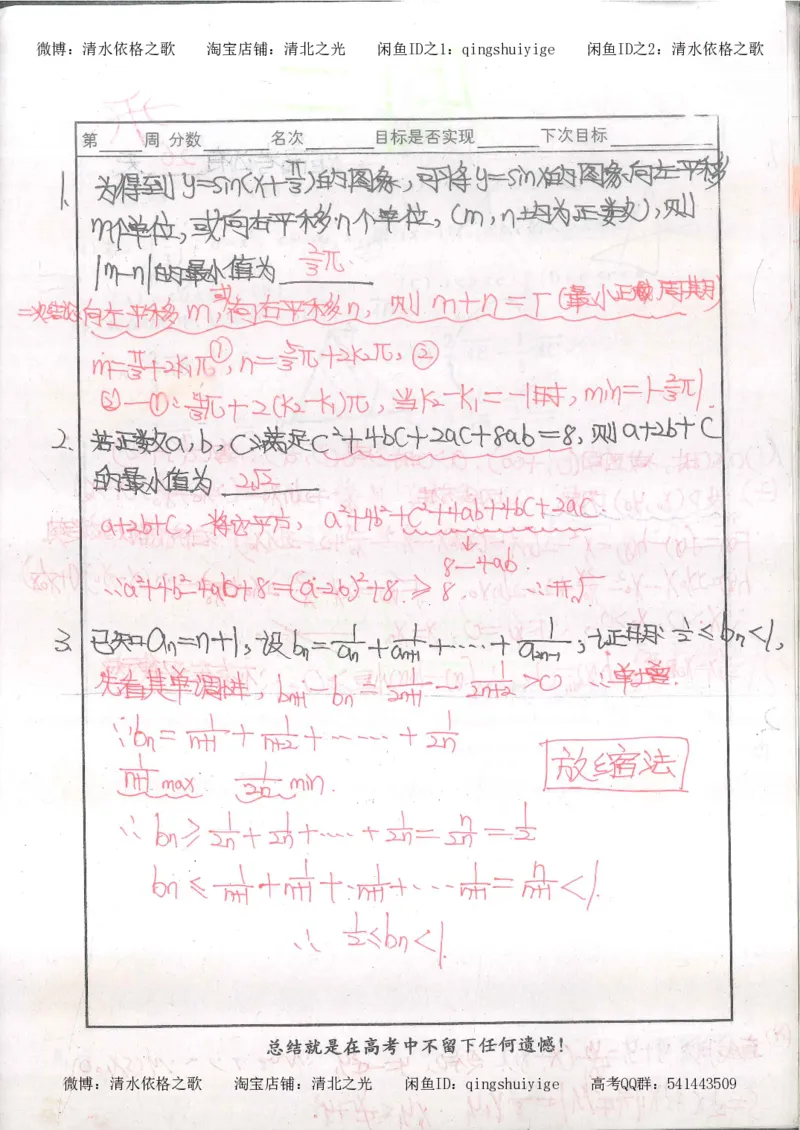 微博：清水依格之歌 淘宝店铺：清北之光 闲鱼ID之1：qingshuiyige 闲鱼ID之2：清水依格之歌
第____周 分数______ 名次______目标是否实现______下次目标__________
1. 为得到y=sin(x+π/3)的图象,可将y=sinx的图象向左平移
m个单位,或向右平移n个单位,(m,n均为正数),则
|m-n|的最小值为 2/3π
向左平移m,或向右平移n,则m+n=T(最小正周期)
m=π/3+2k₁π①,n=5/3π+2k₂π,②
②-①:4/3π+2(k₂-k₁)π,当k₂-k₁=-1时,min=|-2/3π|.
2. 若正数a,b,c满足c²+4bc+2ac+8ab=8,则a+2b+c
的最小值为 2√2
a+2b+c,将它平方,a²+4b²+c²+4ab+4bc+2ac.
8-4ab.
∴a²+4b²-4ab+8=(a-2b)²+8≥8 ∴开√
3. 已知aₙ=n+1,设bₙ=1/aₙ+1/aₙ₊₁+……+1/a₂ₙ₋₁,证明1/2≤bₙ<1,
先看其单调性,bₙ₊₁-bₙ=1/2n+1-1/2n+2>0 ∴单增.
∵bₙ=1/n+1+1/n+2+……+1/2n
1/n+1 max 1/2n min.
放缩法
∴bₙ≥1/2n+1/2n+……+1/2n=n/2n=1/2
bₙ≤1/n+1+1/n+1+1/n+1+…1/n+1=n/n+1<1.
∴1/2≤bₙ<1.
总结就是在高考中不留下任何遗憾！
微博：清水依格之歌 淘宝店铺：清北之光 闲鱼ID：qingshuiyige 高考QQ群：541443509